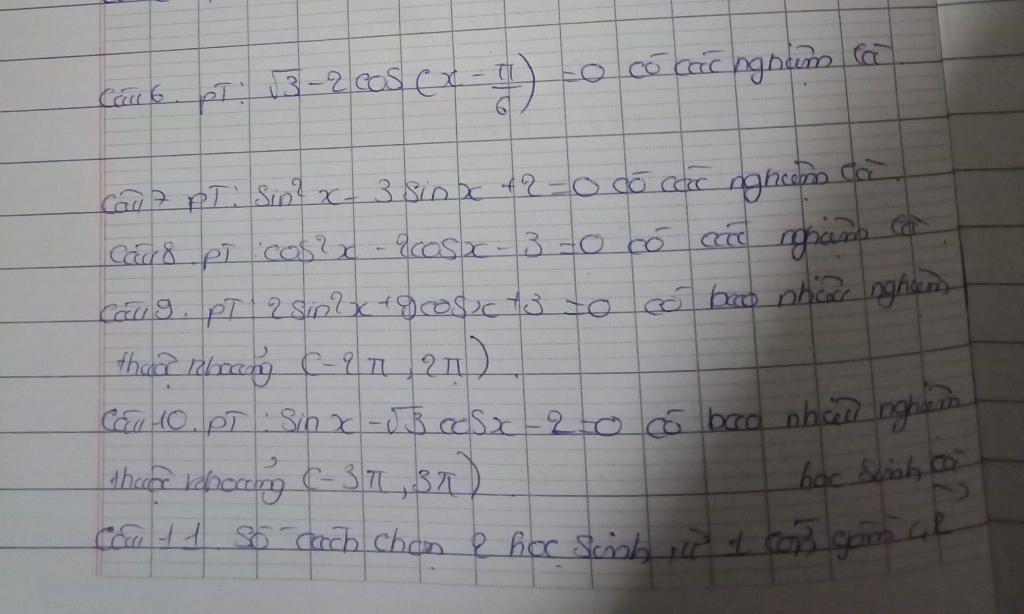 Câu 6. PT: √3 - 2cos(x - π/6) = 0 có các nghiệm là
Câu 7 PT: sin²x - 3sinx + 2 = 0 có các nghiệm là
Câu 8. PT: cos²x - 2cosx - 3 = 0 có các nghiệm là
Câu 9. PT 2sin²x + 9cosx + 3 = 0 có bao nhiêu nghiệm
thuộc khoảng (-2π, 2π).
Câu 10. PT: sinx - √3cosx - 2 = 0 có bao nhiêu nghiệm
thuộc khoảng (-3π, 3π)
học sinh
Câu 11 Số cách chọn 2 học sinh từ 1 gồm